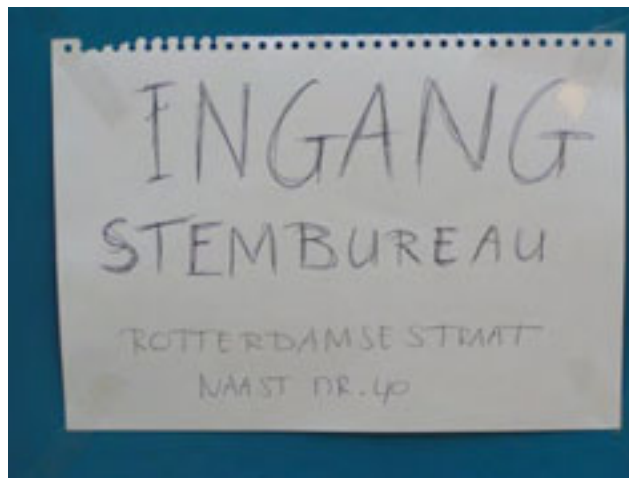 INGANG
STEMBUREAU
ROTTERDAMSESTRAAT
NAAST NR. 40